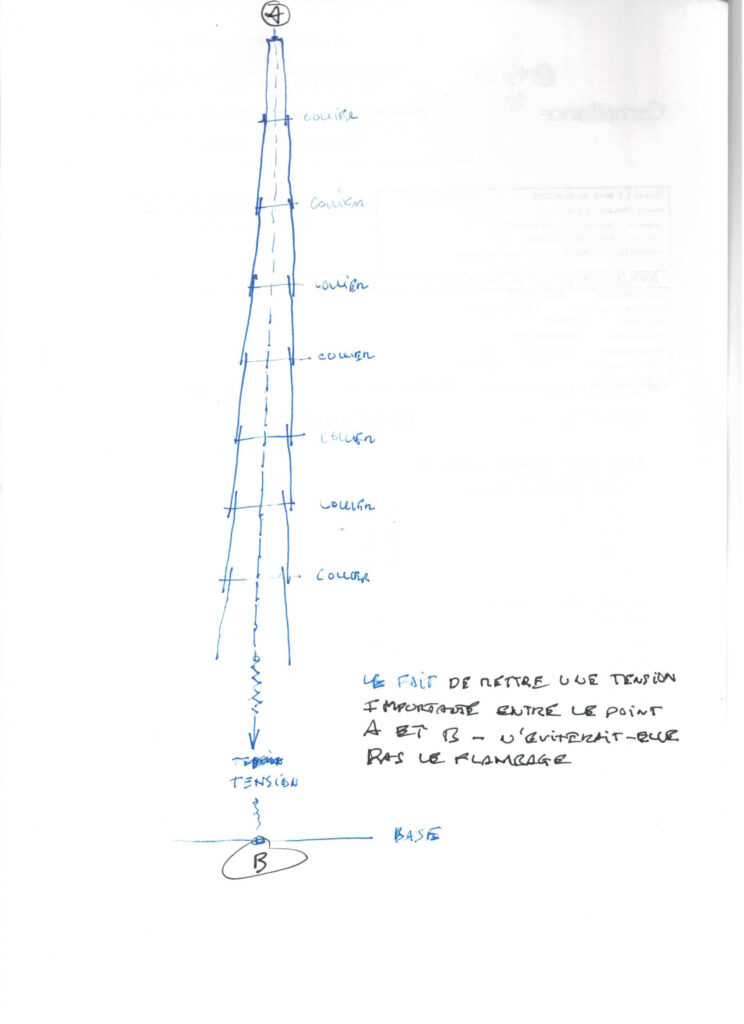 A
COLLIER
COLLIER
COLLIER
COLLIER
COLLIER
COLLIER
COLLIER
LE FAIT DE METTRE UNE TENSION
IMPORTANTE ENTRE LE POINT
A ET B - N'ÉVITERAIT-ELLE
PAS LE FLAMBAGE
TENSION
BASE
B